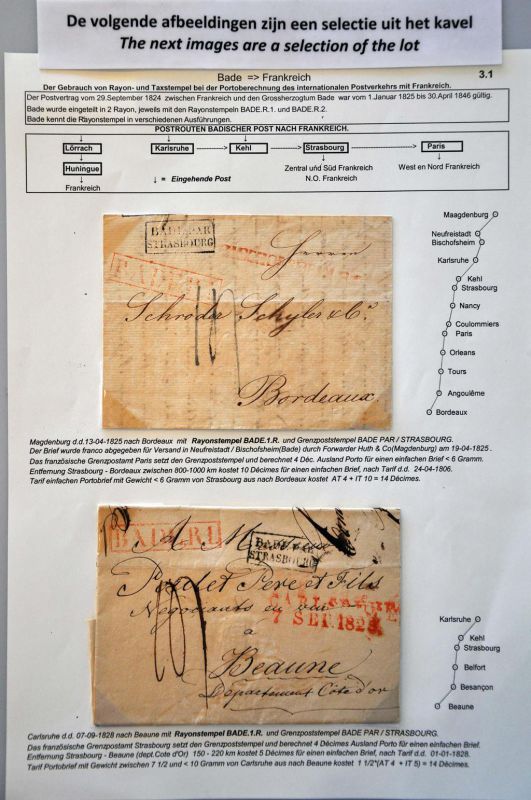 De volgende afbeeldingen zijn een selectie uit het kavel
The next images are a selection of the lot
Bade => Frankreich
3.1
Der Gebrauch von Rayon- und Taxstempel bei der Portoberechnung des internationalen Postverkehrs mit Frankreich.
Der Postvertrag vom 29.September 1824 zwischen Frankreich und den Grossherzogtum Bade war vom 1.Januar 1825 bis 30.April 1846 gültig.
Bade wurde eingeteilt in 2 Rayon, jeweils mit den Rayonstempeln BADE.R.1. und BADE.R.2.
Bade kennt die Rayonstempel in verschiedenen Ausführungen.
POSTROUTEN BADISCHER POST NACH FRANKREICH.
Lörrach Karlsruhe Kehl Strasbourg Paris
Huningue
Zentral und Süd Frankreich West en Nord Frankreich
Frankreich ↓ = Eingehende Post N.O. Frankreich
BADE PAR
STRASBOURG
Herren
BADE.R.1
Schröder Schyler & Co.
Bordeaux
Maagdenburg
Neufreistadt
Bischofsheim
Karlsruhe
Kehl
Strasbourg
Nancy
Coulommiers
Paris
Orleans
Tours
Angoulême
Bordeaux
Magdenburg d.d.13-04-1825 nach Bordeaux mit Rayonstempel BADE.1.R. und Grenzpoststempel BADE PAR / STRASBOURG.
Der Brief wurde franco abgegeben für Versand in Neufreistatt / Bischofsheim(Bade) durch Forwarder Huth & Co(Magdenburg) am 19-04-1825 .
Das französische Grenzpostamt Paris setzt den Grenzpoststempel und berechnet 4 Déc. Ausland Porto für einen einfachen Brief < 6 Gramm.
Entfernung Strasbourg - Bordeaux zwischen 800-1000 km kostet 10 Décimes für einen einfachen Brief, nach Tarif d.d. 24-04-1806.
Tarif einfachen Portobrief mit Gewicht < 6 Gramm von Strasbourg aus nach Bordeaux kostet AT 4 + IT 10 = 14 Décimes.
BADE.R.1
A
BADE PAR
STRASBOURG
Pere et Fils
CARLSRUHE
7 SEP. 1828
Negociants en vin
à
Beaune
Departement Cote d'or
Karlsruhe
Kehl
Strasbourg
Belfort
Besançon
Beaune
Carlsruhe d.d. 07-09-1828 nach Beaune mit Rayonstempel BADE.1.R. und Grenzpoststempel BADE PAR / STRASBOURG.
Das französische Grenzpostamt Strasbourg setzt den Grenzpoststempel und berechnet 4 Décimes Ausland Porto für einen einfachen Brief.
Entfernung Strasbourg - Beaune (dept.Cote d'Or) 150 - 220 km kostet 5 Décimes für einen einfachen Brief, nach Tarif d.d. 01-01-1828.
Tarif Portobrief mit Gewicht zwischen 7 1/2 und < 10 Gramm von Carlsruhe aus nach Beaune kostet 1 1/2*(AT 4 + IT 5) = 14 Décimes.